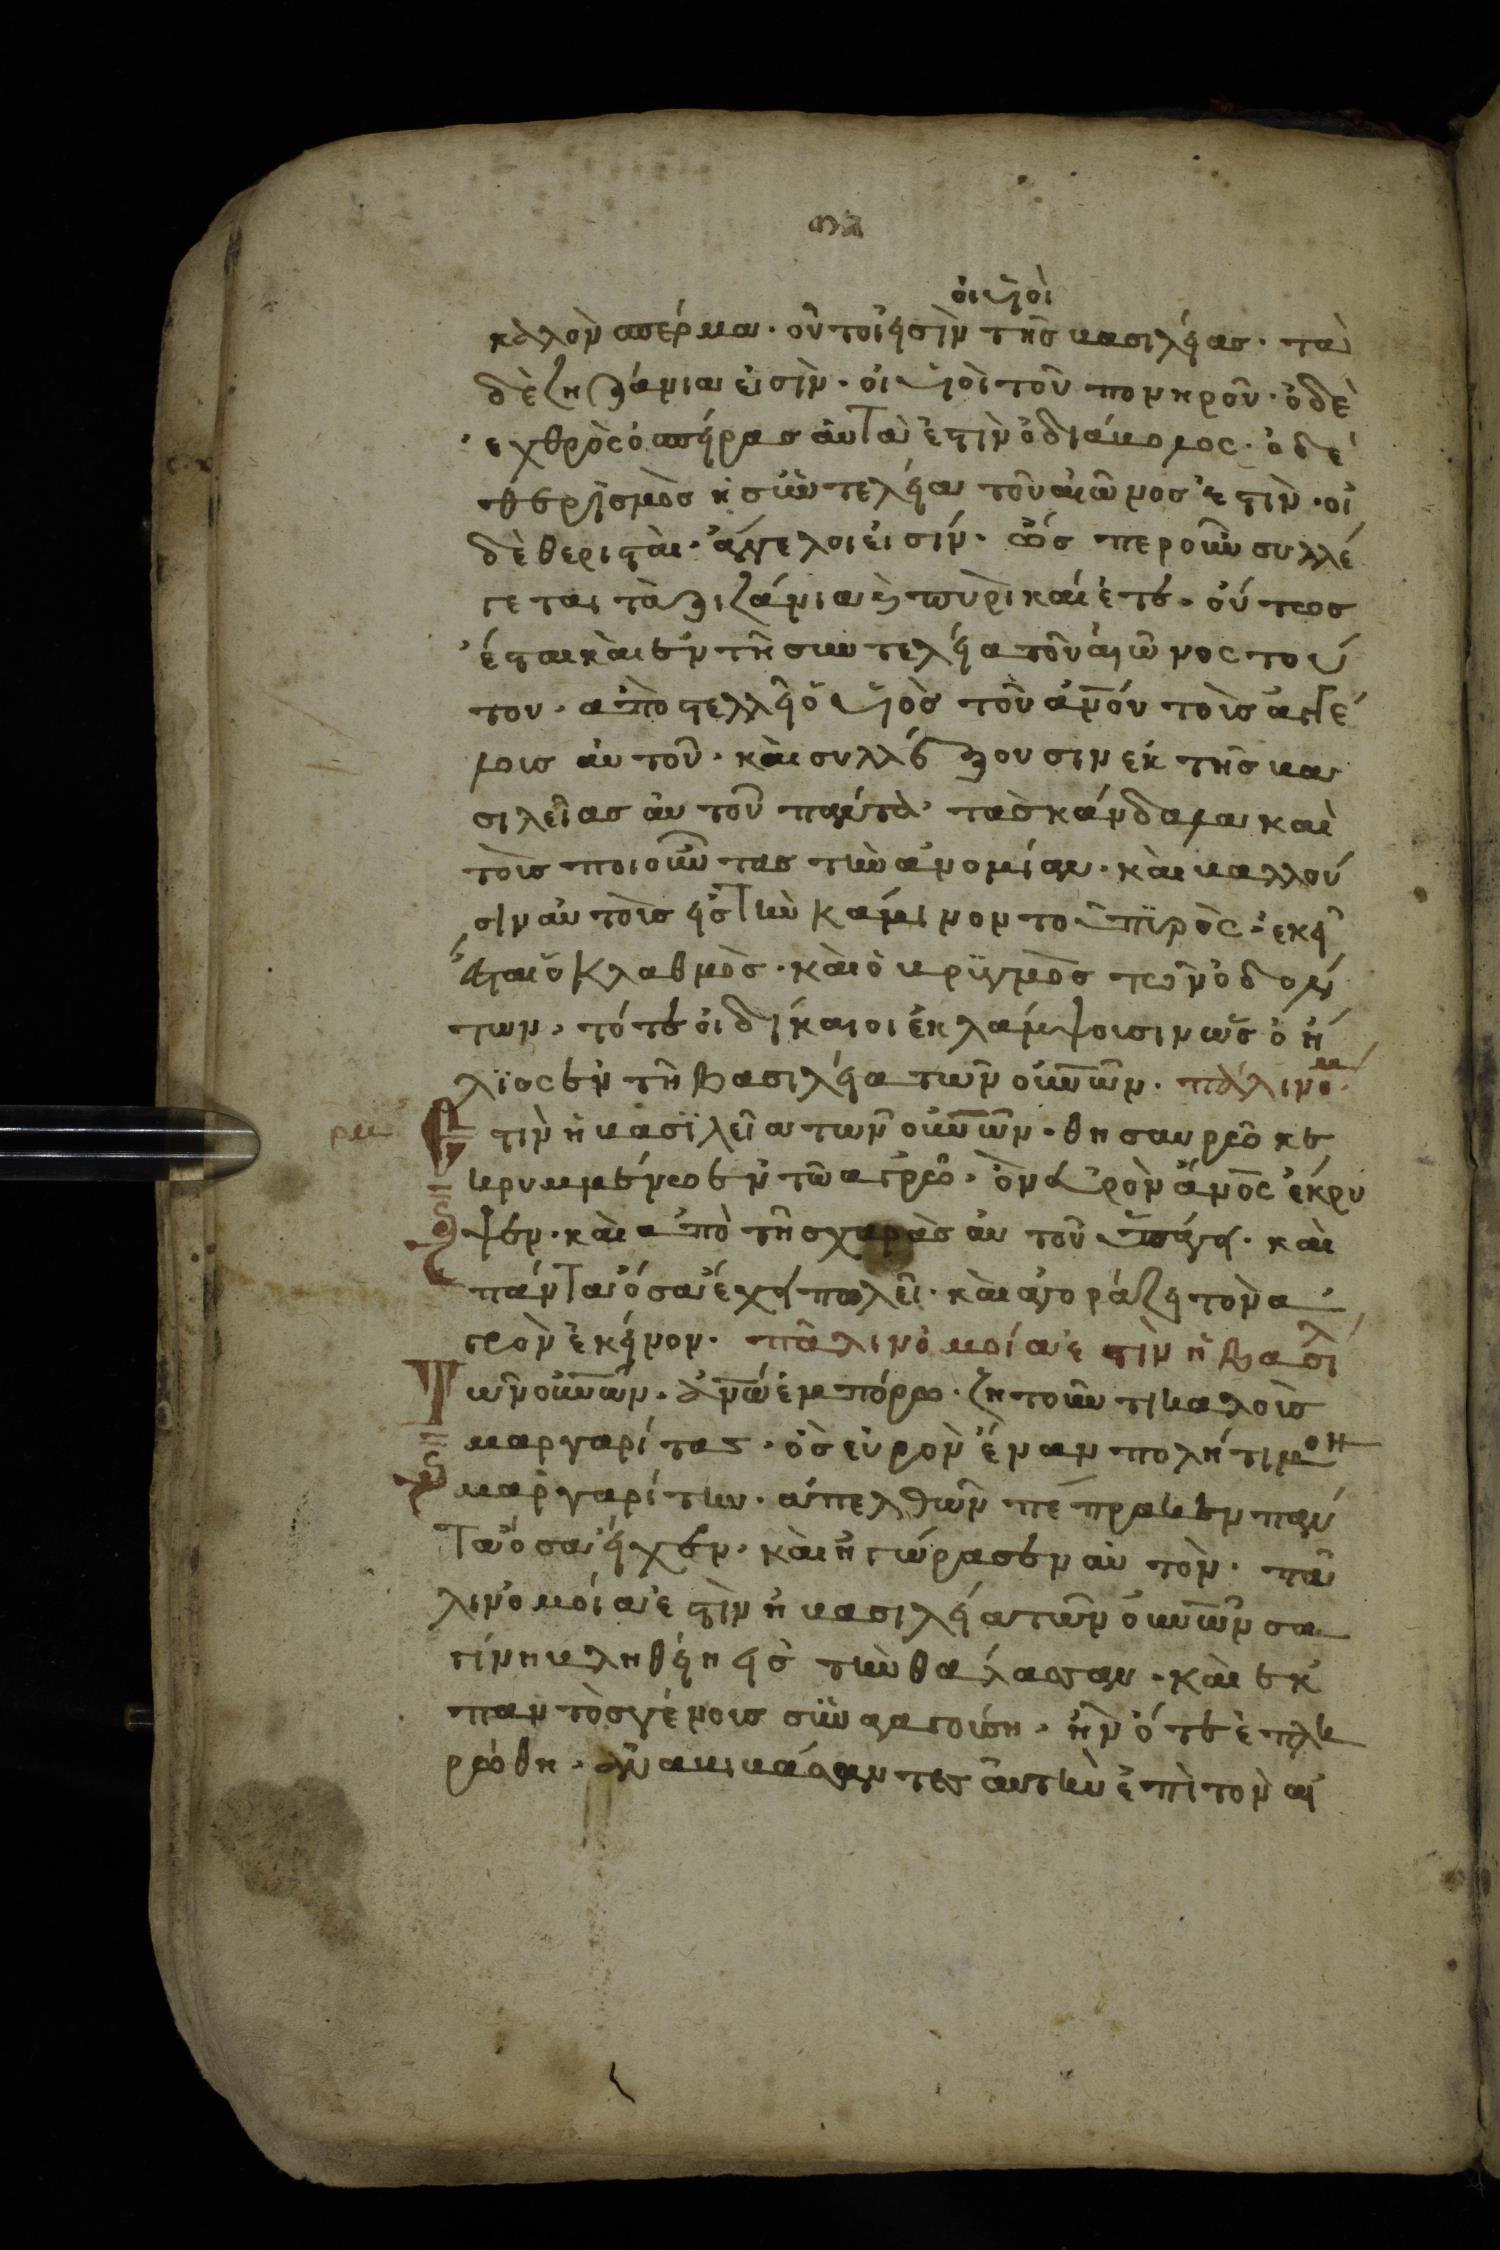 οἱ υἱοὶ
καλὸν σπέρμα· οὗτοί ησὶν τῆς βασιλήας· τὰ
δὲ ζηζάνια εἰσὶν· οἱ υἱοὶ τοῦ πονηροῦ· ὁ δὲ
εχθρὸς ὁ σπήρας αὐτὰ ἐστὶν ὁ διάβολος· ὁ δὲ
θερισμὸς ἡ σϋντελήα τοῦ αἰῶνος ἐστὶν· οἱ
δὲ θερισταὶ· ἄγγελοι εἰσίν· ὥς περ οὖν συλλέ
γεται τὰ ζιζάνια ἐν πυρὶ καίετε· οὕτως
ἔσται καὶ ἐν τῆ συντελήα τοῦ αἰῶνος τού
του· αποστελλῆ ὁ υἱὸς τοῦ ἀνου τοὶς ἀγγέ
λοις αὐτοῦ· καὶ συλλέξουσιν εκ τῆς βα
σιλείας αὐτοῦ πάντα τα σκάνδαλα καὶ
τοὶς ποιοῦντας τὴν ἀνομίαν· καὶ βαλλού
σιν αὐτοὶς ησ τὴν κάμινον τοῦ πϋρὸς· ἐκῆ
ἔσται ὁ κλαθμὸς· καὶ ὁ βρϋγμὸς τῶν ὀδόν
των· τότε οἱ δίκαιοι ἐκλάμψοισιν ὡς ὁ ἥ
λϊος ἐν τῆ βασιλήα τῶν οὐνων· πάλιν ομ
Ἐστὶν ἡ βασϊλεία τῶν οὐνων· θησαυρῶ κε
κρυμμένω ἐν τῶ αγρῶ· ὃν εὑρὸν ἄνος ἐκρυ
ψεν· καὶ απὸ τῆς χαρὰς αὐτοῦ ὑπάγη· καὶ
πάντα ὅσα ἔχη πωλεῖ· καὶ ἀγοράζη τὸν α
γρὸν ἐκήνον· πάλιν ὁμοία ἐστὶν ἡ βασιλ
Τῶν οὐνων· ἀνω ἐμπόρω· ζητοῦντι καλοὶς
μαργαρίτας· ὃς εὑρὸν ἕναν πολήτιμον
μαργαρίτην· ἀπελθὼν πέπρακεν πάν
τα ὅσα ήχεν· καὶ ἡγώρασεν αὐτὸν· πά
λιν ὁμοία ἐστὶν ἡ βασιλήα τῶν οὐνων σα
γίνη βληθήη ησ τὴν θάλασσαν· καὶ ἐκ
παντὸς γένοις σϋναγαγοίση· ἣν ὅτε ἐπλη
ρώθη· ἀναβιβάσαντες αὐτὴν ἐπὶ τὸν αἰ